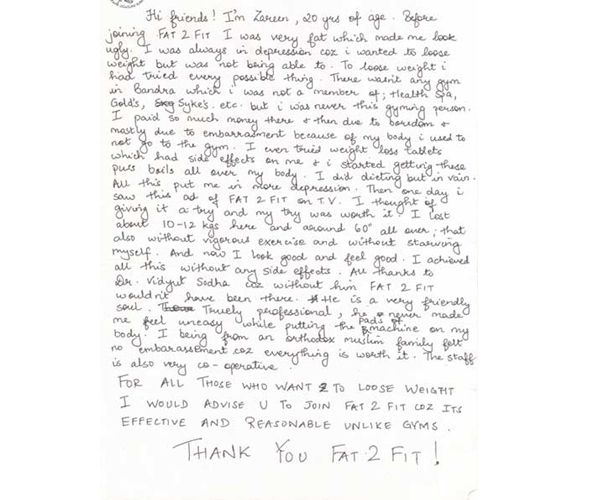 Hi friends! I'm Zareen, 20 yrs of age. Before
joining FAT 2 FIT I was very fat which made me look
ugly. I was always in depression coz i wanted to loose
weight but was not being able to. To loose weight i
had tried every possible thing. There wasn't any gym
in Bandra which i was not a member of; Health Spa,
Gold's, Syke's. etc. but i was never this gyming person.
I paid so much money there & then due to boredom &
mostly due to embarrasment because of my body i used to
not go to the gym. I even tried weight loss tablets
which had side effects on me & i started getting these
puss boils all over my body. I did dieting but in vain.
All this put me in more depression. Then one day i
saw this ad of FAT 2 FIT on T.V. I thought of
giving it a try and my try was worth it! I lost
about 10-12 kgs here and around 60" all over; that
also without vigorous exercise and without starving
myself. And now I look good and feel good. I achieved
all this without any side effects. All thanks to
Dr. Vidyut Sodha coz without him FAT 2 FIT
wouldn't have been there. He is a very friendly
soul. Truely professional, he never made
me feel uneasy while putting the pads of machine on my
body. I being from an orthodox muslim family felt
no embarassement coz everything is worth it. The staff
is also very co-operative.
FOR ALL THOSE WHO WANT TO LOOSE WEIGHT
I WOULD ADVISE U TO JOIN FAT 2 FIT COZ ITS
EFFECTIVE AND REASONABLE UNLIKE GYMS.
THANK YOU FAT 2 FIT!